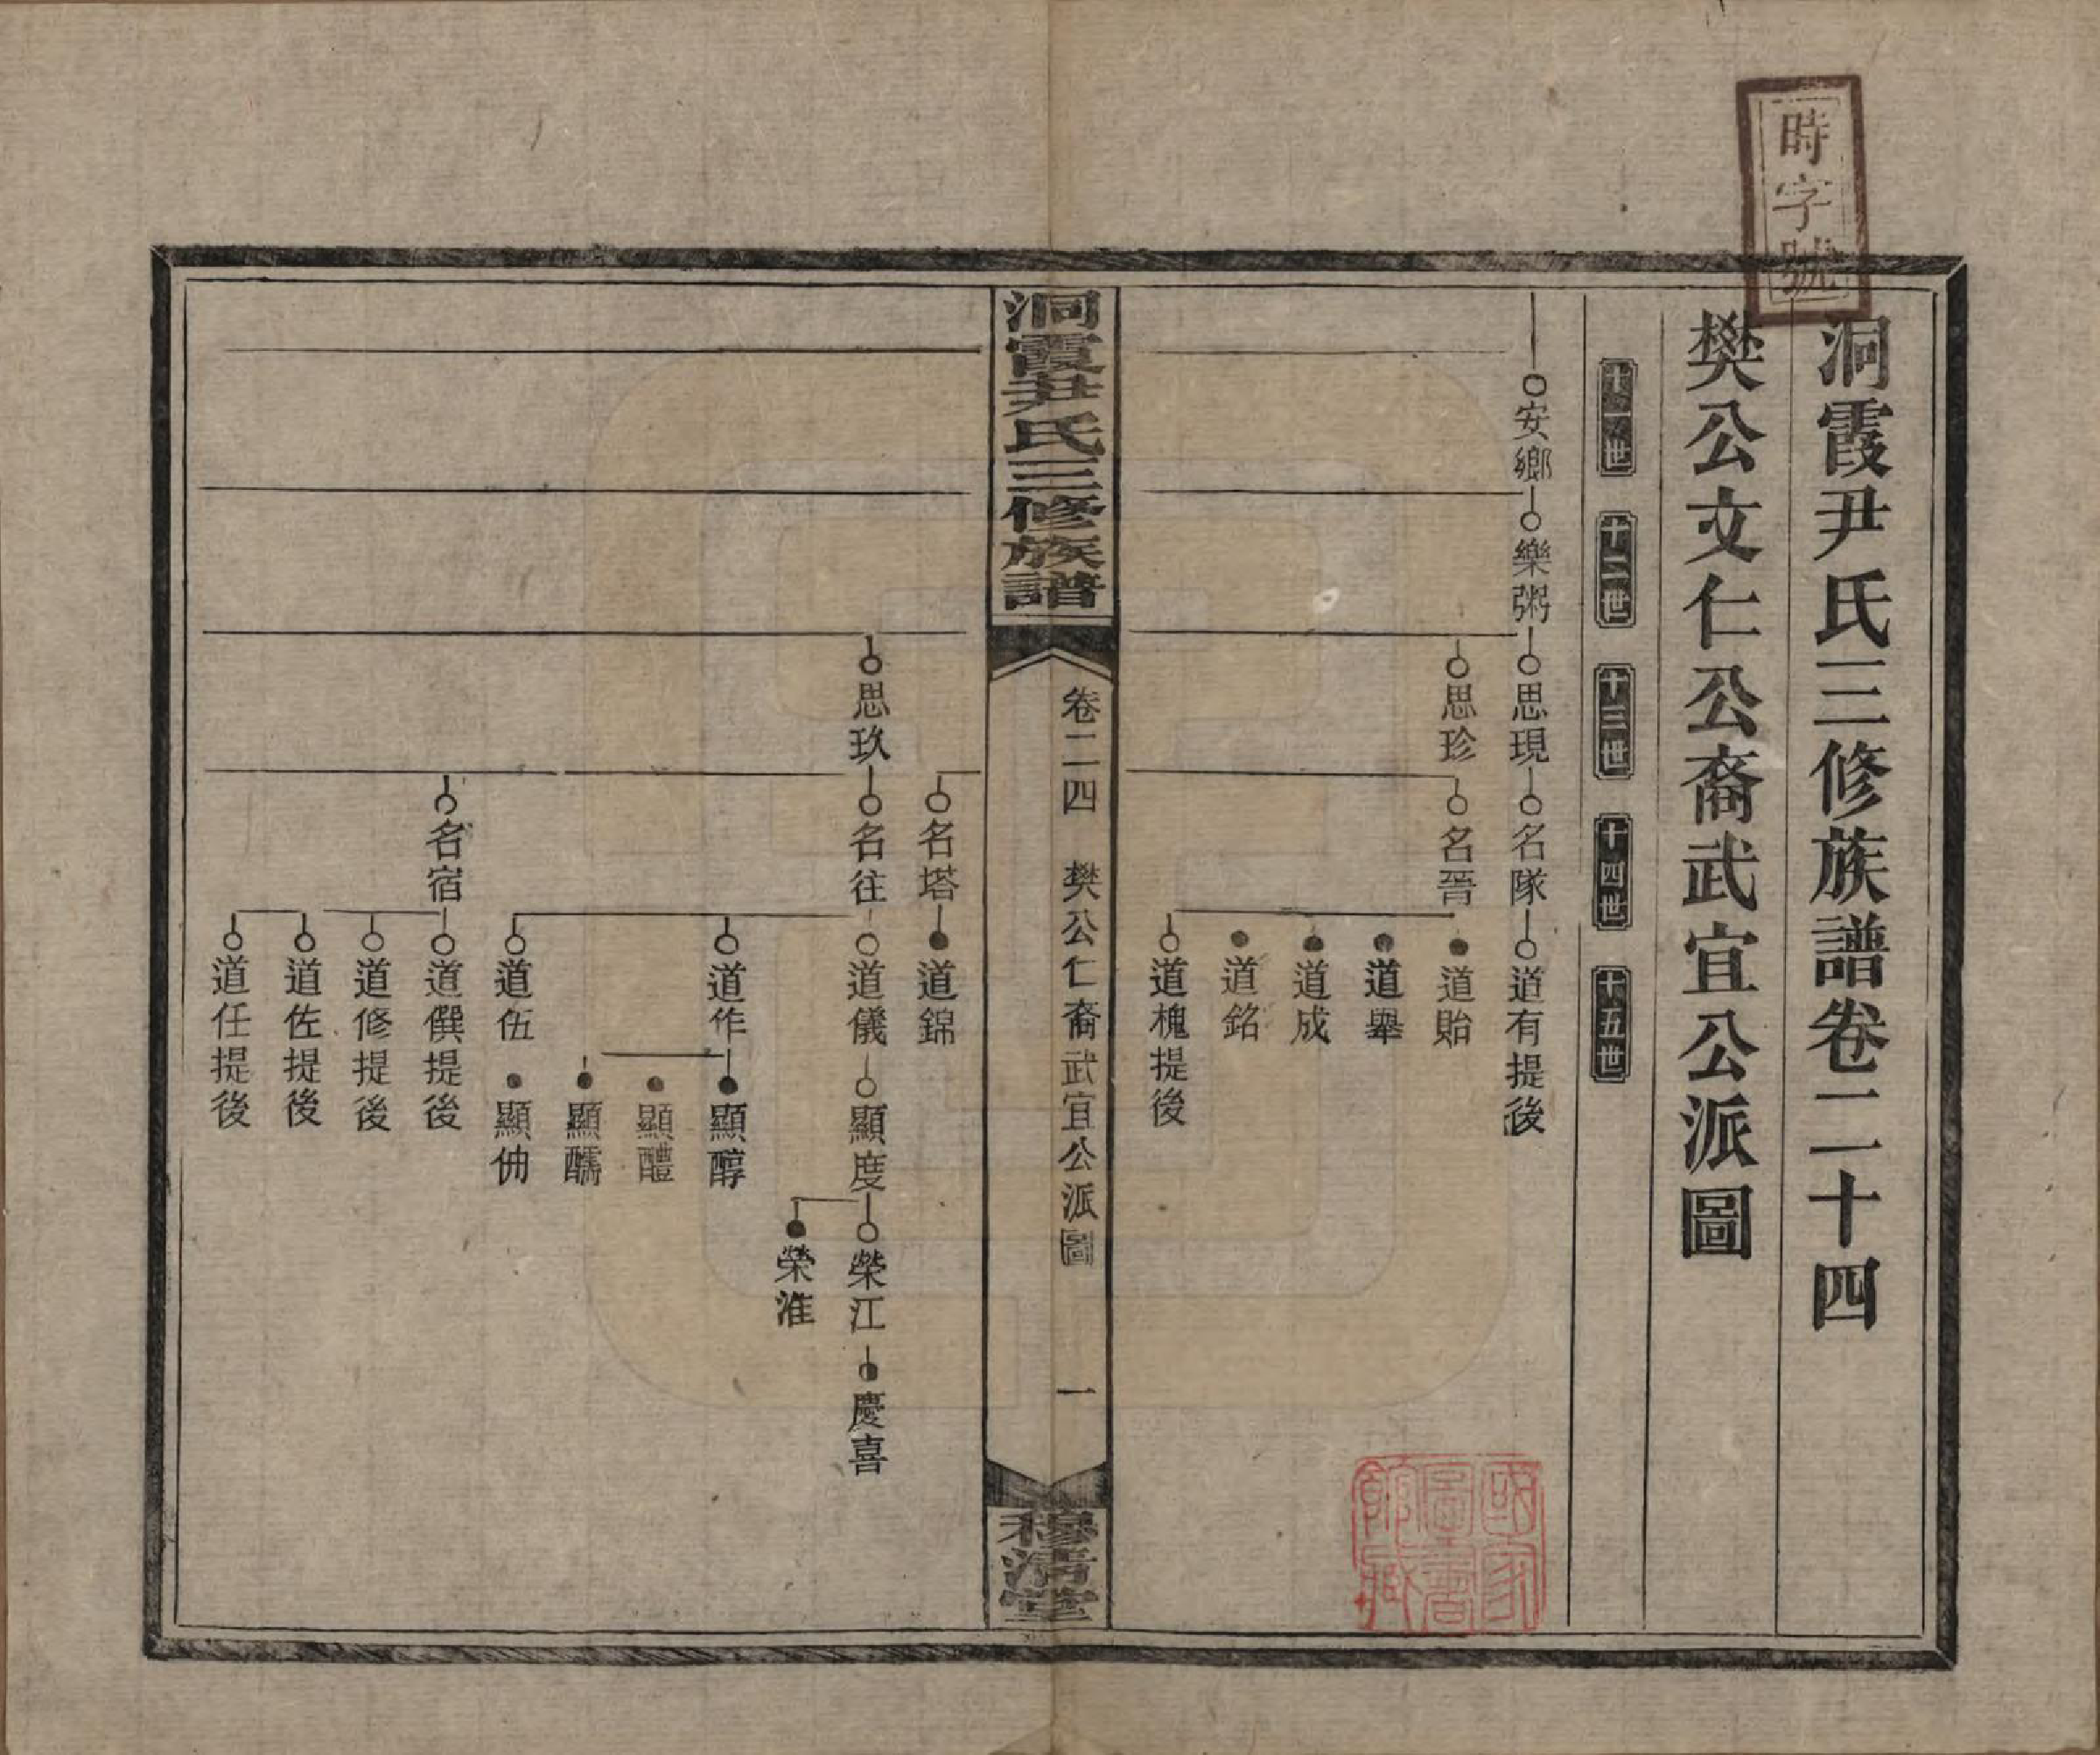 時字號
洞霞尹氏三修族譜卷二十四
樊公文仁公裔武宜公派圖
十一世 十二世 十三世 十四世 十五世
安鄉 樂粥 思現 名隊 道有提後
思珍 名晉 道貽
道舉
道成
道銘
道槐提後
洞霞尹氏三修族譜 卷二四 樊公仁裔武宜公派圖 一 穆清堂
名塔 道錦
思玖 名往 道儀 顯度 榮江 慶喜
榮淮
道作 顯醇
顯醴
顯醹
道伍 顯伷
名宿 道僎提後
道修提後
道佐提後
道任提後
國家圖書館藏